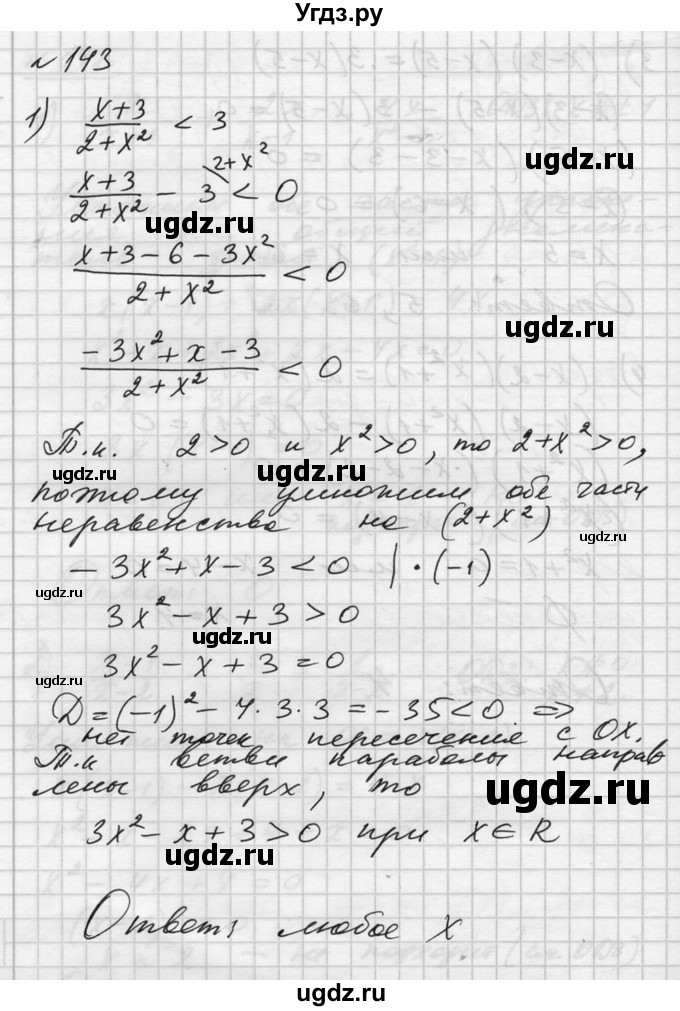 Угдз.ру
№ 143
1) (x+3)/(2+x²) < 3
(x+3)/(2+x²) − 3 < 0
2+x²
ugdz.ru
ugdz.ru
(x+3−6−3x²)/(2+x²) < 0
ugdz.ru
ugdz.ru
(−3x²+x−3)/(2+x²) < 0
ugdz.ru
Т.к. 2>0 и x²>0, то 2+x²>0,
ugdz.ru
поэтому умножим обе части
неравенства на (2+x²)
ugdz.ru
−3x²+x−3<0 |·(−1)
ugdz.ru
3x²−x+3>0
ugdz.ru
3x²−x+3=0
Д=(−1)²−4·3·3=−35<0 ⇒
нет точек пересечение с OX.
Т.к ветви параболы направ
лены вверх, то
ugdz.ru
3x²−x+3>0 при x∈R
ugdz.ru
Ответ: любое x
ugdz.ru